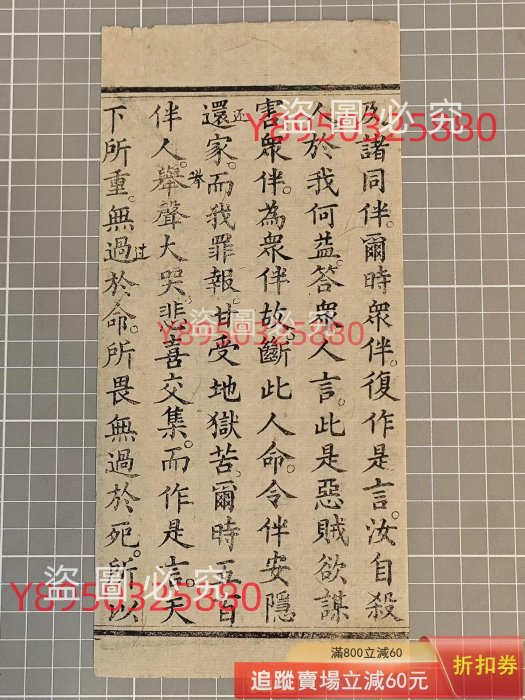 及諸同伴。爾時衆伴。復作是言。汝自殺
人於我何益。答衆人言。此是惡賊欲謀
害衆伴。為衆伴故。斷此人命。令伴安隱
还
還家。而我罪報。甘受地獄苦。爾時五百
伴人。舉聲大哭。悲喜交集。而作是言。天
过
下所重。無過於命。所畏無過於死。所以
盜圖必究
Y8950325880
盜圖必究
Y8950325880
盜圖必究
Y8950325880
滿800立減60
追蹤賣場立減60元
折扣券